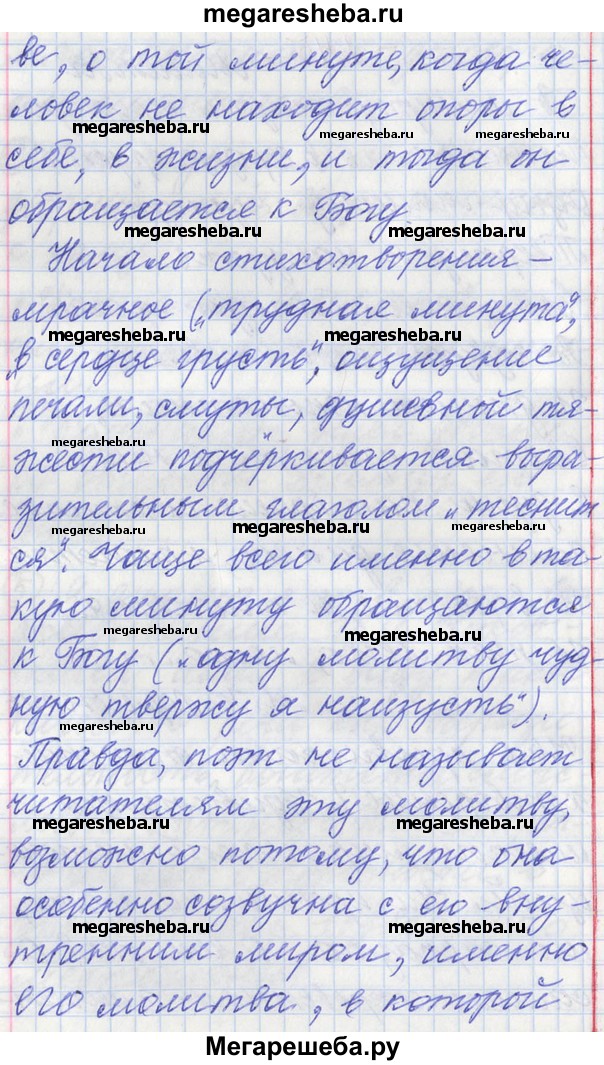 megaresheba.ru
ве, о той минуте, когда че-
ловек не находит опоры в
megaresheba.ru megaresheba.ru
себе, в жизни, и тогда он
обращается к Богу.
megaresheba.ru megaresheba.ru
Начало стихотворения -
мрачное („трудная минута",
megaresheba.ru megaresheba.ru
„в сердце грусть", ощущение
печали, смуты, душевной тя-
megaresheba.ru megaresheba.ru
жести подчёркивается выра-
зительным глаголом „теснит
megaresheba.ru megaresheba.ru
ся". Чаще всего именно в та-
кую минуту обращаются
megaresheba.ru megaresheba.ru
к Богу („одну молитву чуд-
ную твержу я наизусть").
megaresheba.ru
Правда, поэт не называет
читателям эту молитву,
megaresheba.ru megaresheba.ru
возможно потому, что она
особенно созвучна с его вну-
megaresheba.ru megaresheba.ru
тренним миром, именно
его молитва, в которой
Мегарешеба.ру